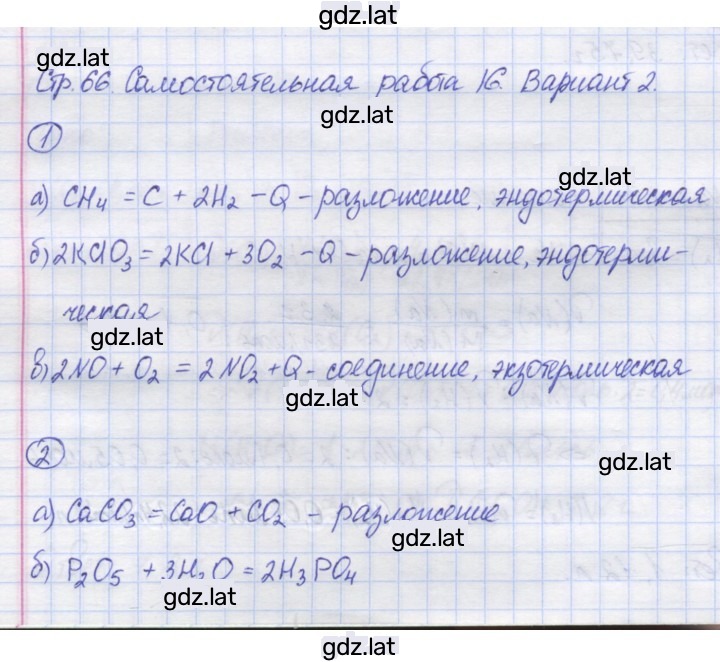 gdz.lat
gdz.lat
Стр. 66. Самостоятельная работа 16. Вариант 2.
gdz.lat
1
gdz.lat
а) CH₄ = C + 2H₂ – Q – разложение, эндотермическая
б) 2KClO₃ = 2KCl + 3O₂ – Q – разложение, эндотерми-
ческая
gdz.lat
в) 2NO + O₂ = 2NO₂ + Q – соединение, экзотермическая
gdz.lat
2
gdz.lat
а) CaCO₃ = CaO + CO₂ – разложение
gdz.lat
б) P₂O₅ + 3H₂O = 2H₃PO₄
gdz.lat
gdz.lat